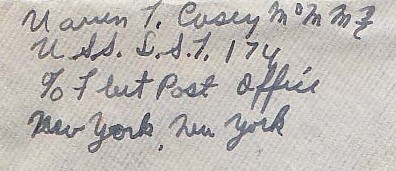 Warren T. Casey MoMM
U.S.S. L.S.T. 174
% Fleet Post Office
New York, New York